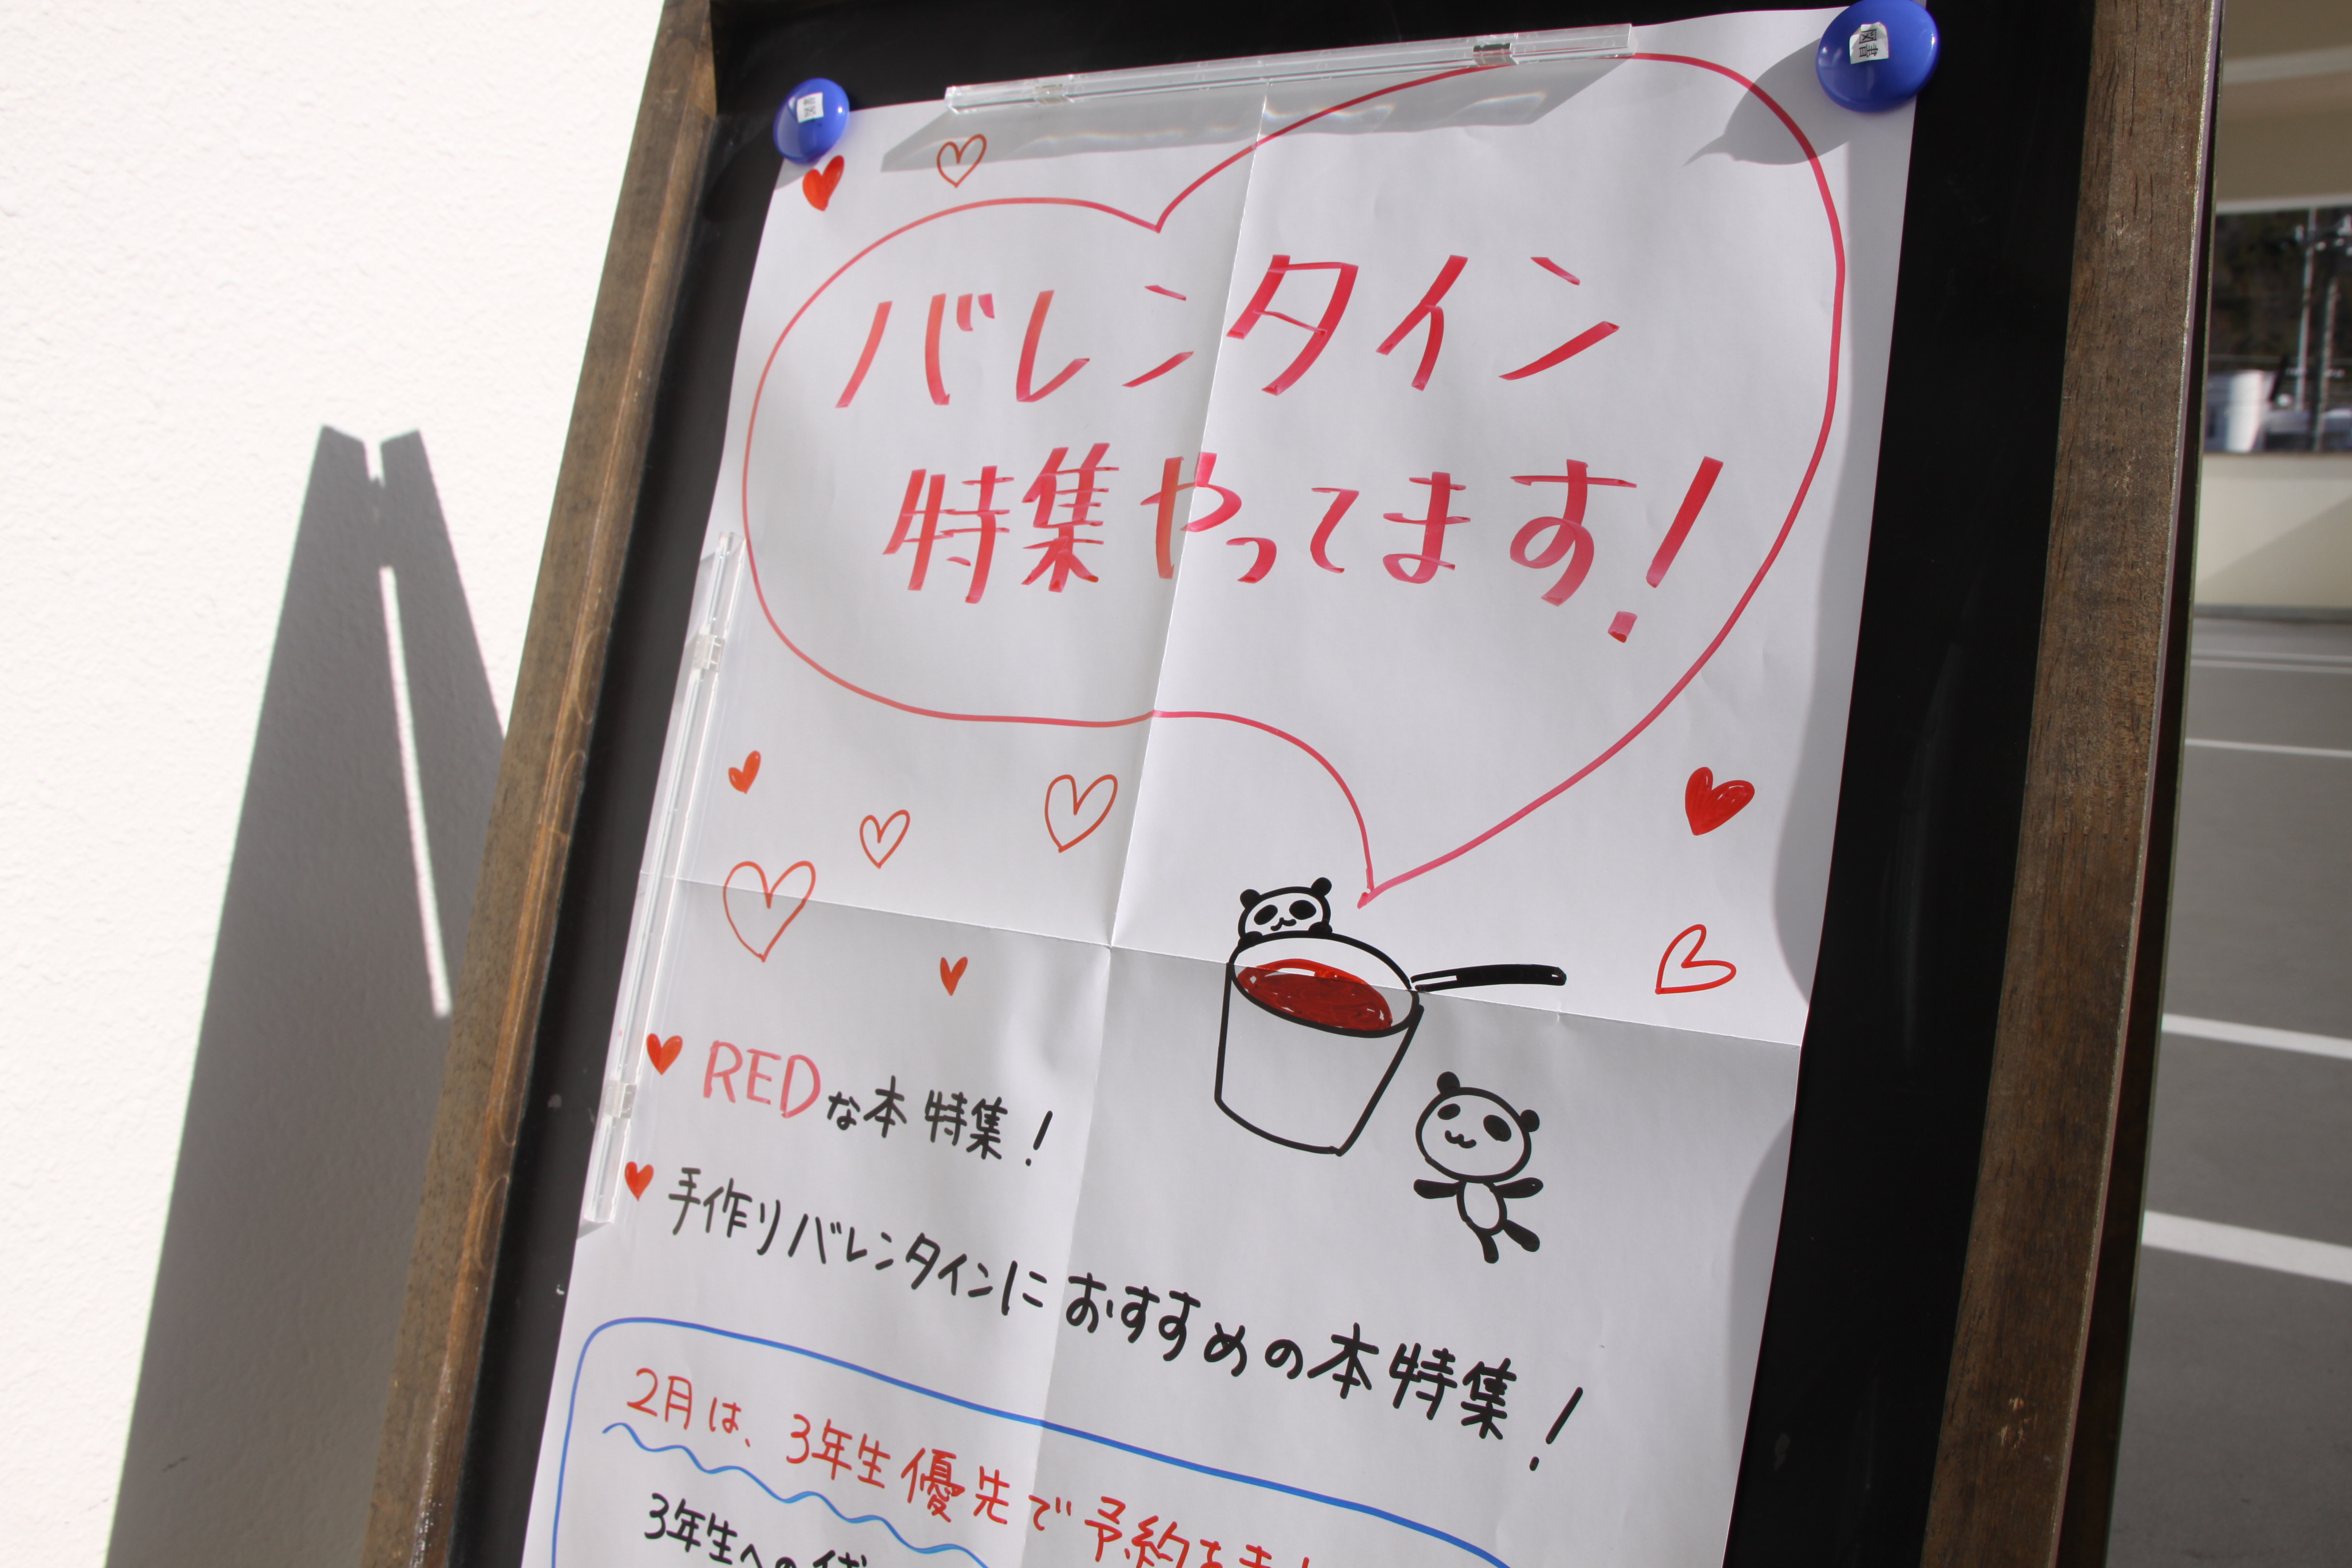 図書
図書
バレンタイン
特集やってます!
REDな本 特集!
手作りバレンタインにおすすめの本特集!
2月は、3年生優先で予約を
3年生への